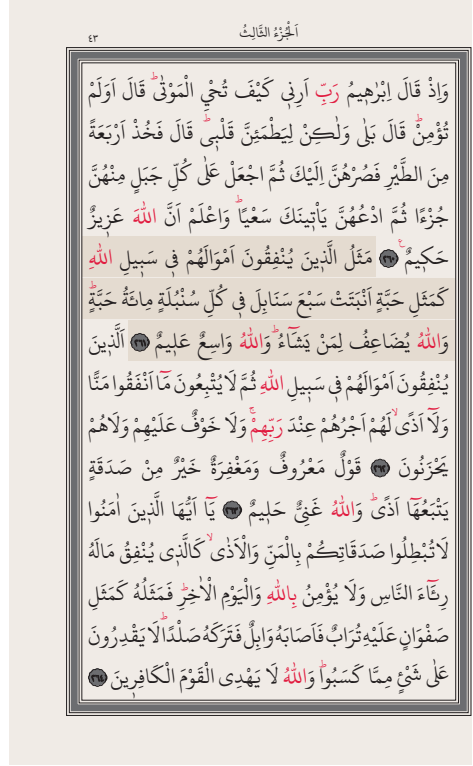 اَلْجُزْءُ الثَّالِثُ ٤٣
وَاِذْ قَالَ اِبْرٰه۪يمُ رَبِّ اَرِن۪ي كَيْفَ تُحْيِ الْمَوْتٰىۜ قَالَ اَوَلَمْ
تُؤْمِنْۜ قَالَ بَلٰى وَلٰكِنْ لِيَطْمَئِنَّ قَلْب۪يۜ قَالَ فَخُذْ اَرْبَعَةً
مِنَ الطَّيْرِ فَصُرْهُنَّ اِلَيْكَ ثُمَّ اجْعَلْ عَلٰى كُلِّ جَبَلٍ مِنْهُنَّ
جُزْءًا ثُمَّ ادْعُهُنَّ يَأْت۪ينَكَ سَعْيًاۜ وَاعْلَمْ اَنَّ اللّٰهَ عَز۪يزٌ
حَك۪يمٌ۟ ﴿٢٦٠﴾ مَثَلُ الَّذ۪ينَ يُنْفِقُونَ اَمْوَالَهُمْ ف۪ي سَب۪يلِ اللّٰهِ
كَمَثَلِ حَبَّةٍ اَنْبَتَتْ سَبْعَ سَنَابِلَ ف۪ي كُلِّ سُنْبُلَةٍ مِائَةُ حَبَّةٍۜ
وَاللّٰهُ يُضَاعِفُ لِمَنْ يَشَٓاءُۜ وَاللّٰهُ وَاسِعٌ عَل۪يمٌ ﴿٢٦١﴾ اَلَّذ۪ينَ
يُنْفِقُونَ اَمْوَالَهُمْ ف۪ي سَب۪يلِ اللّٰهِ ثُمَّ لَا يُتْبِعُونَ مَٓا اَنْفَقُوا مَنًّا
وَلَٓا اَذًىۙ لَهُمْ اَجْرُهُمْ عِنْدَ رَبِّهِمْۚ وَلَا خَوْفٌ عَلَيْهِمْ وَلَا هُمْ
يَحْزَنُونَ ﴿٢٦٢﴾ قَوْلٌ مَعْرُوفٌ وَمَغْفِرَةٌ خَيْرٌ مِنْ صَدَقَةٍ
يَتْبَعُهَٓا اَذًىۜ وَاللّٰهُ غَنِيٌّ حَل۪يمٌ ﴿٢٦٣﴾ يَٓا اَيُّهَا الَّذ۪ينَ اٰمَنُوا
لَا تُبْطِلُوا صَدَقَاتِكُمْ بِالْمَنِّ وَالْاَذٰىۙ كَالَّذ۪ي يُنْفِقُ مَالَهُ
رِئَٓاءَ النَّاسِ وَلَا يُؤْمِنُ بِاللّٰهِ وَالْيَوْمِ الْاٰخِرِۜ فَمَثَلُهُ كَمَثَلِ
صَفْوَانٍ عَلَيْهِ تُرَابٌ فَاَصَابَهُ وَابِلٌ فَتَرَكَهُ صَلْدًاۜ لَا يَقْدِرُونَ
عَلٰى شَيْءٍ مِمَّا كَسَبُواۜ وَاللّٰهُ لَا يَهْدِي الْقَوْمَ الْكَافِر۪ينَ ﴿٢٦٤﴾